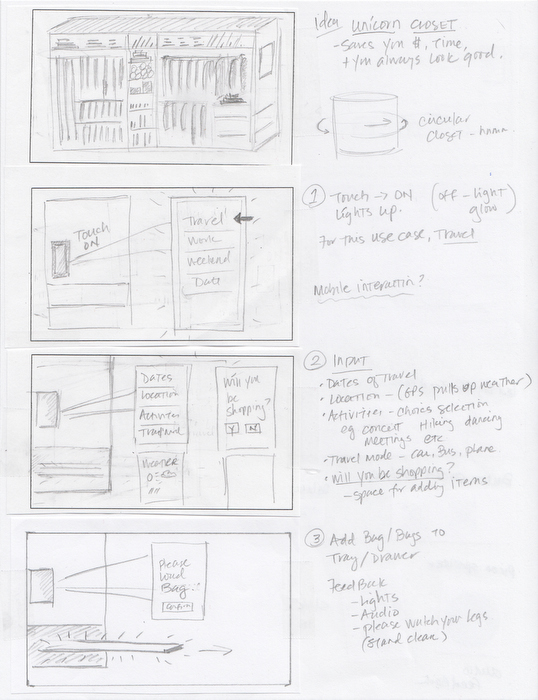 idea UNICORN CLOSET
- Saves you $, Time,
+ you always look good.
circular
closet - hmm.
Touch ON
Travel
Work
Weekend
Date
① Touch → ON (off - light
Lights up. glow)
For this use case, Travel
Mobile interaction?
Dates
Location
Activities
Weather
Will you
be
shopping?
Y N
② INPUT
• Dates of Travel
• Location - (GPS pulls up weather)
• Activities - choices selection
eg concert Hiking dancing
meetings etc
• Travel mode - car, Bus, plane.
• Will you be shopping?
- space for adding items
Please
Load
Bag.
Confirm
③ Add Bag/Bags to
Tray/Drawer
Feedback
- Lights
- Audio
- please watch your legs
(stand clear)